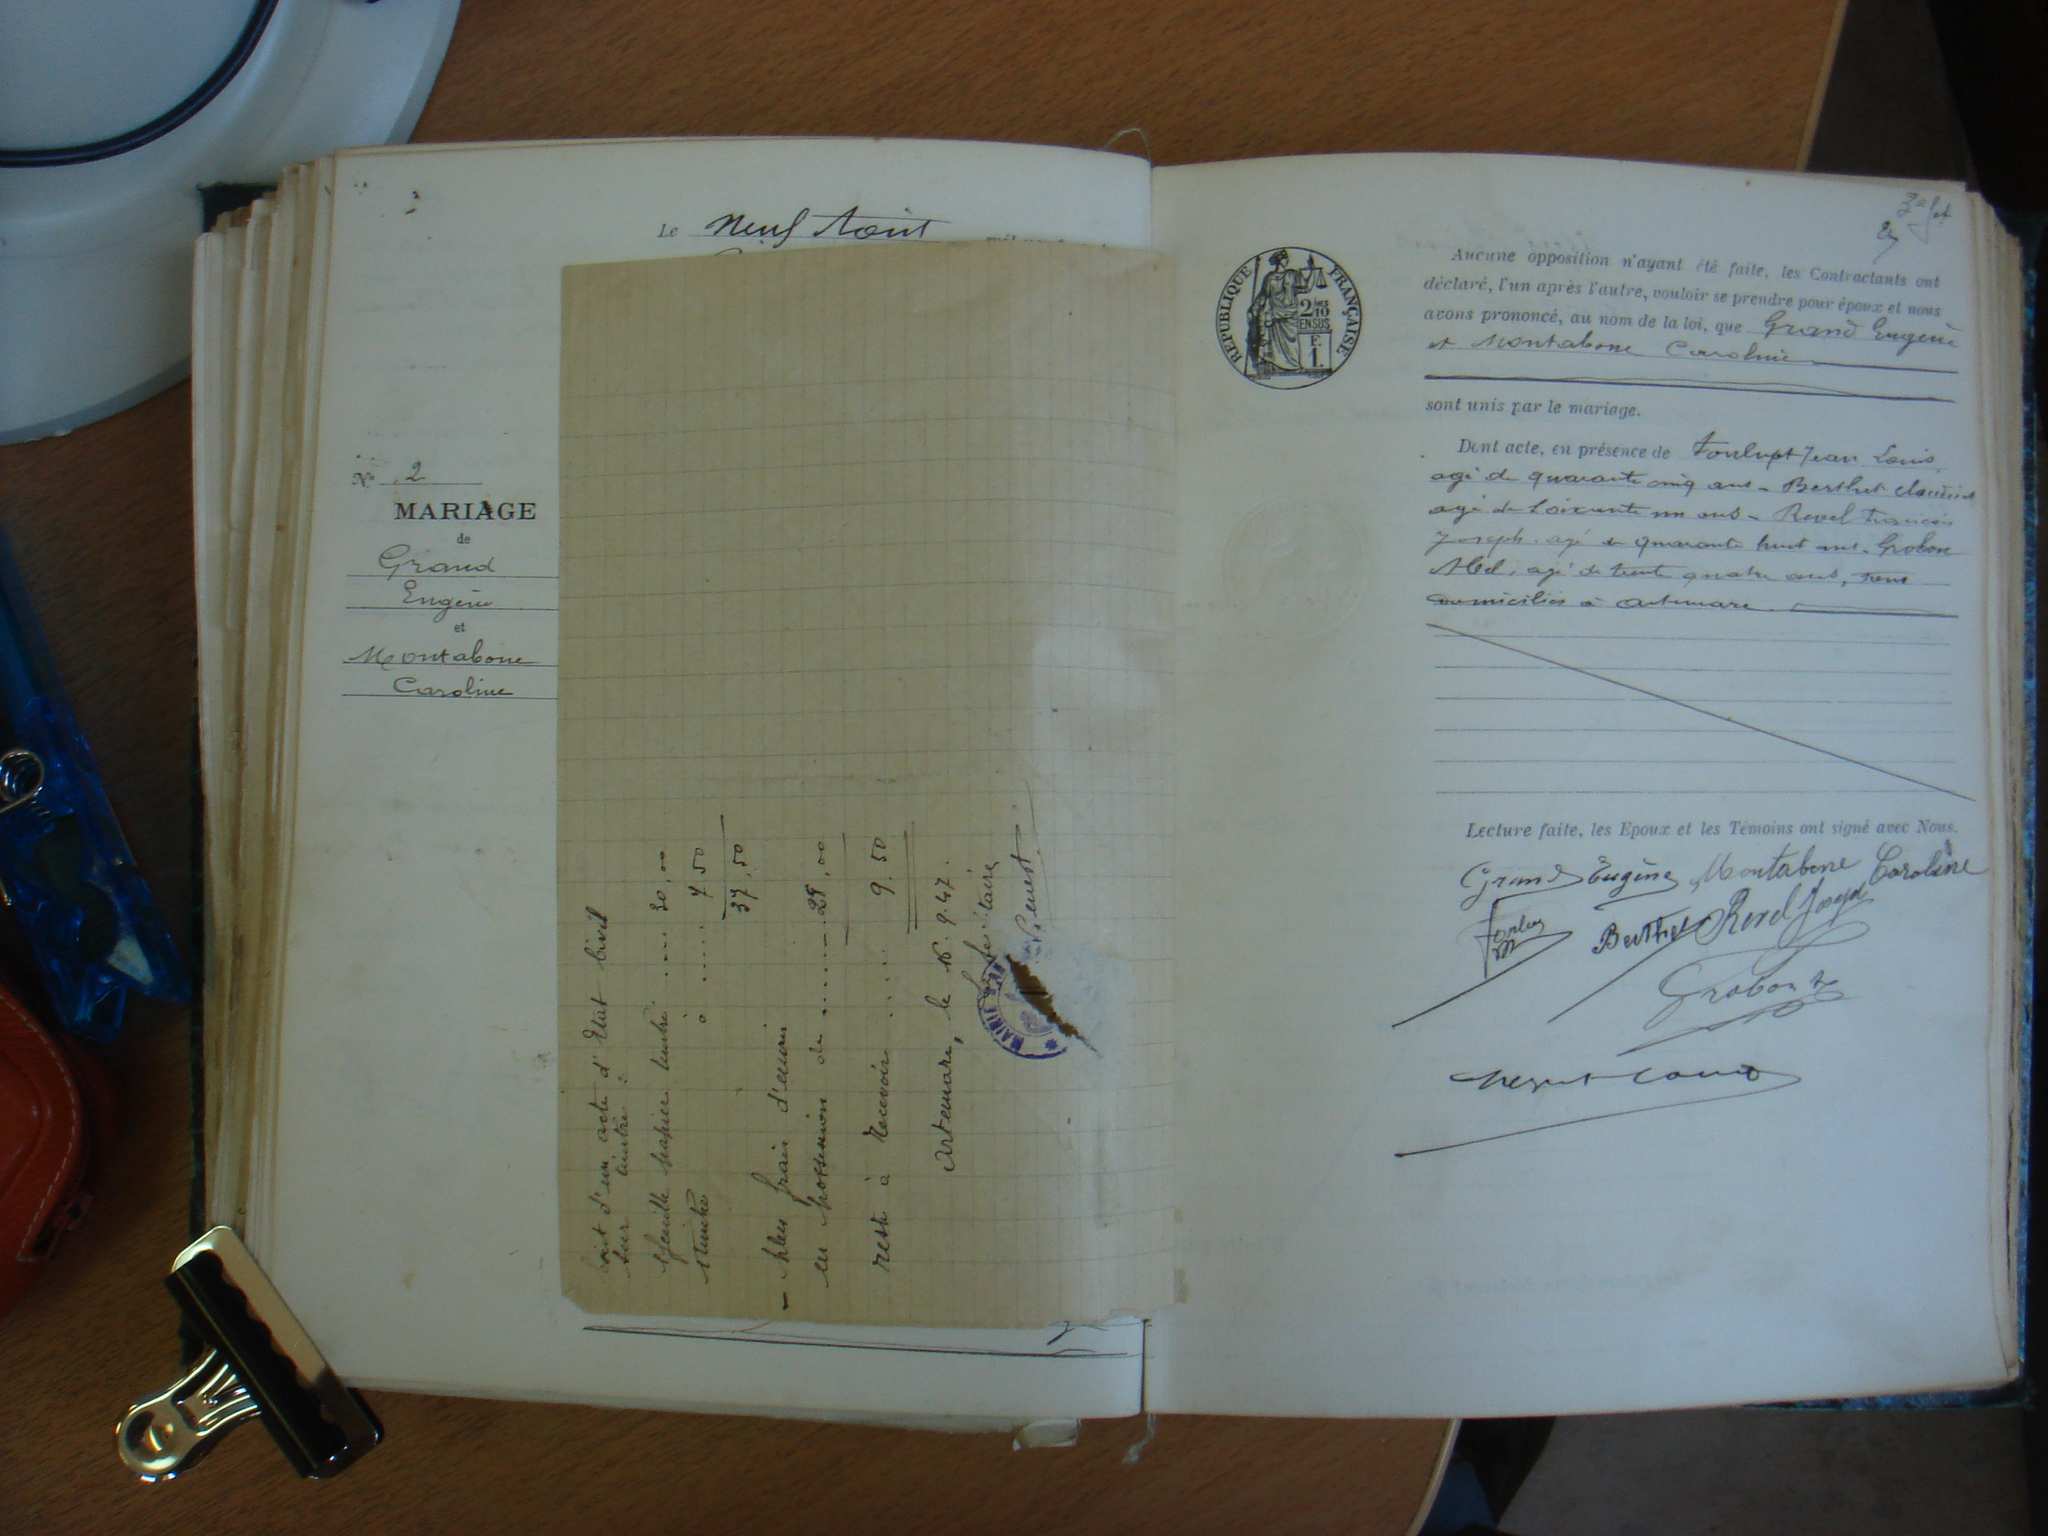 Le Neuf Août
N° 2
MARIAGE
de
Grand
Eugène
et
Montabone
Caroline
Coût d'un acte d'Etat Civil
sur timbre :
feuille papier timbré .... 30,00
à ..... 7 50
37,50
- plus frais d'envoi
en possession de ....... 28,00
reste à recevoir .... 9.50
Artemare, le 16.9.47.
MAIRIE
RÉPUBLIQUE FRANÇAISE
2/10
EN SUS
F.
1.
Aucune opposition n'ayant été faite, les Contractants ont
déclaré, l'un après l'autre, vouloir se prendre pour époux et nous
avons prononcé, au nom de la loi, que Grand Eugène
et Montabone Caroline
sont unis par le mariage.
Dont acte, en présence de Jean Louis,
agé de quarante cinq ans - Berthet
agé de soixante un ans - Revel François
Joseph. agé de quarante huit ans. Grobon
Abel, agé de trente quatre ans, tous
domiciliés à Artemare.
Lecture faite, les Epoux et les Témoins ont signé avec Nous.
Grand Eugène Montabone Caroline
Berthet Revel Joseph
Grobon